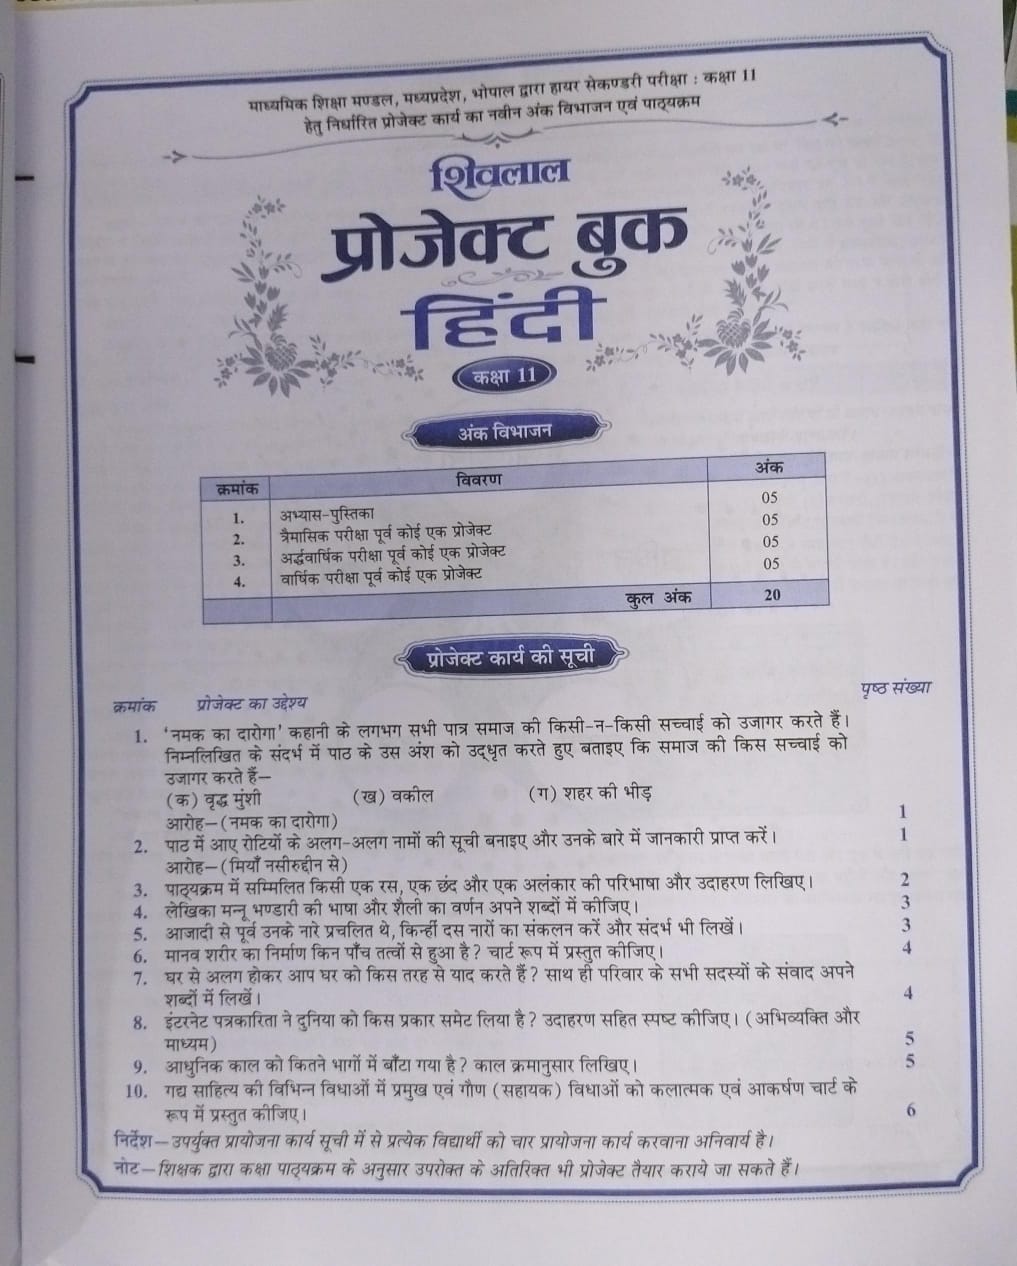 माध्यमिक शिक्षा मण्डल, मध्यप्रदेश, भोपाल द्वारा हायर सेकण्डरी परीक्षा : कक्षा 11
हेतु निर्धारित प्रोजेक्ट कार्य का नवीन अंक विभाजन एवं पाठ्यक्रम
शिवलाल
प्रोजेक्ट बुक
हिंदी
कक्षा 11
अंक विभाजन
क्रमांक विवरण अंक
1. अभ्यास-पुस्तिका 05
2. त्रैमासिक परीक्षा पूर्व कोई एक प्रोजेक्ट 05
3. अर्द्धवार्षिक परीक्षा पूर्व कोई एक प्रोजेक्ट 05
4. वार्षिक परीक्षा पूर्व कोई एक प्रोजेक्ट 05
कुल अंक 20
प्रोजेक्ट कार्य की सूची
क्रमांक प्रोजेक्ट का उद्देश्य पृष्ठ संख्या
1. 'नमक का दारोगा' कहानी के लगभग सभी पात्र समाज की किसी-न-किसी सच्चाई को उजागर करते हैं।
निम्नलिखित के संदर्भ में पाठ के उस अंश को उद्धृत करते हुए बताइए कि समाज की किस सच्चाई को
उजागर करते हैं—
(क) वृद्ध मुंशी (ख) वकील (ग) शहर की भीड़
आरोह—(नमक का दारोगा) 1
2. पाठ में आए रोटियों के अलग-अलग नामों की सूची बनाइए और उनके बारे में जानकारी प्राप्त करें। 1
आरोह—(मियाँ नसीरुद्दीन से)
3. पाठ्यक्रम में सम्मिलित किसी एक रस, एक छंद और एक अलंकार की परिभाषा और उदाहरण लिखिए। 2
4. लेखिका मन्नू भण्डारी की भाषा और शैली का वर्णन अपने शब्दों में कीजिए। 3
5. आजादी से पूर्व उनके नारे प्रचलित थे, किन्हीं दस नारों का संकलन करें और संदर्भ भी लिखें। 3
6. मानव शरीर का निर्माण किन पाँच तत्वों से हुआ है? चार्ट रूप में प्रस्तुत कीजिए। 4
7. घर से अलग होकर आप घर को किस तरह से याद करते हैं? साथ ही परिवार के सभी सदस्यों के संवाद अपने
शब्दों में लिखें। 4
8. इंटरनेट पत्रकारिता ने दुनिया को किस प्रकार समेट लिया है? उदाहरण सहित स्पष्ट कीजिए। (अभिव्यक्ति और
माध्यम) 5
9. आधुनिक काल को कितने भागों में बाँटा गया है? काल क्रमानुसार लिखिए। 5
10. गद्य साहित्य की विभिन्न विधाओं में प्रमुख एवं गौण (सहायक) विधाओं को कलात्मक एवं आकर्षण चार्ट के
रूप में प्रस्तुत कीजिए। 6
निर्देश—उपर्युक्त प्रायोजना कार्य सूची में से प्रत्येक विद्यार्थी को चार प्रायोजना कार्य करवाना अनिवार्य है।
नोट—शिक्षक द्वारा कक्षा पाठ्यक्रम के अनुसार उपरोक्त के अतिरिक्त भी प्रोजेक्ट तैयार कराये जा सकते हैं।